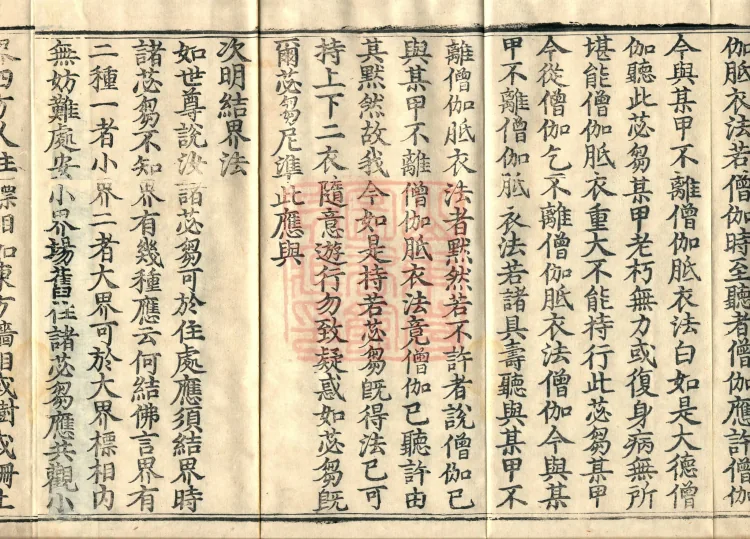 伽胝衣法若僧伽時至聽者僧伽應許僧伽
今與某甲不離僧伽胝衣法白如是大德僧
伽聽此苾芻某甲老朽無力或復身病無所
堪能僧伽胝衣重大不能持行此苾芻某甲
今從僧伽乞不離僧伽胝衣法僧伽今與某
甲不離僧伽胝衣法若諸具壽聽與某甲不
離僧伽胝衣法者默然若不許者說僧伽已
與某甲不離僧伽胝衣法竟僧伽已聽許由
其默然故我今如是持若苾芻既得法已可
持上下二衣隨意遊行勿致疑惑如苾芻既
爾苾芻尼準此應與
次明結界法
如世尊說汝諸苾芻可於住處應須結界時
諸苾芻不知界有幾種應云何結佛言界有
二種一者小界二者大界可於大界標相內
無妨難處安小界場舊住諸苾芻應共觀小
界四方久住標相如東方牆相或樹或柵土